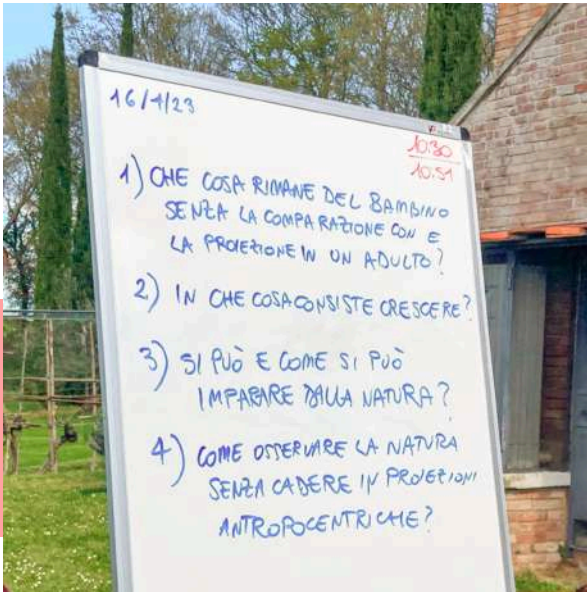 16/4/23
10:30
10:51
1) CHE COSA RIMANE DEL BAMBINO
SENZA LA COMPARAZIONE CON E
LA PROIEZIONE IN UN ADULTO?
2) IN CHE COSA CONSISTE CRESCERE?
3) SI PUÒ E COME SI PUÒ
IMPARARE DALLA NATURA?
4) COME OSSERVARE LA NATURA
SENZA CADERE IN PROIEZIONI
ANTROPOCENTRICHE?